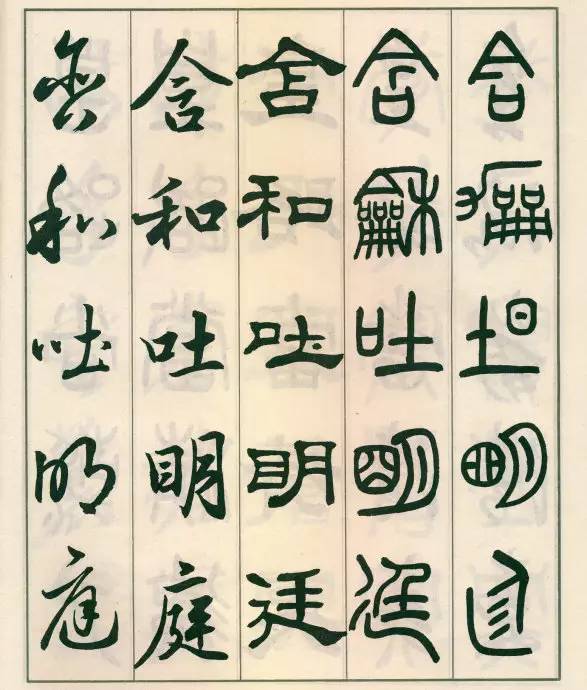 含龢吐明廷
含龢吐明廷
含和吐明廷
含和吐明庭
含和吐明庭